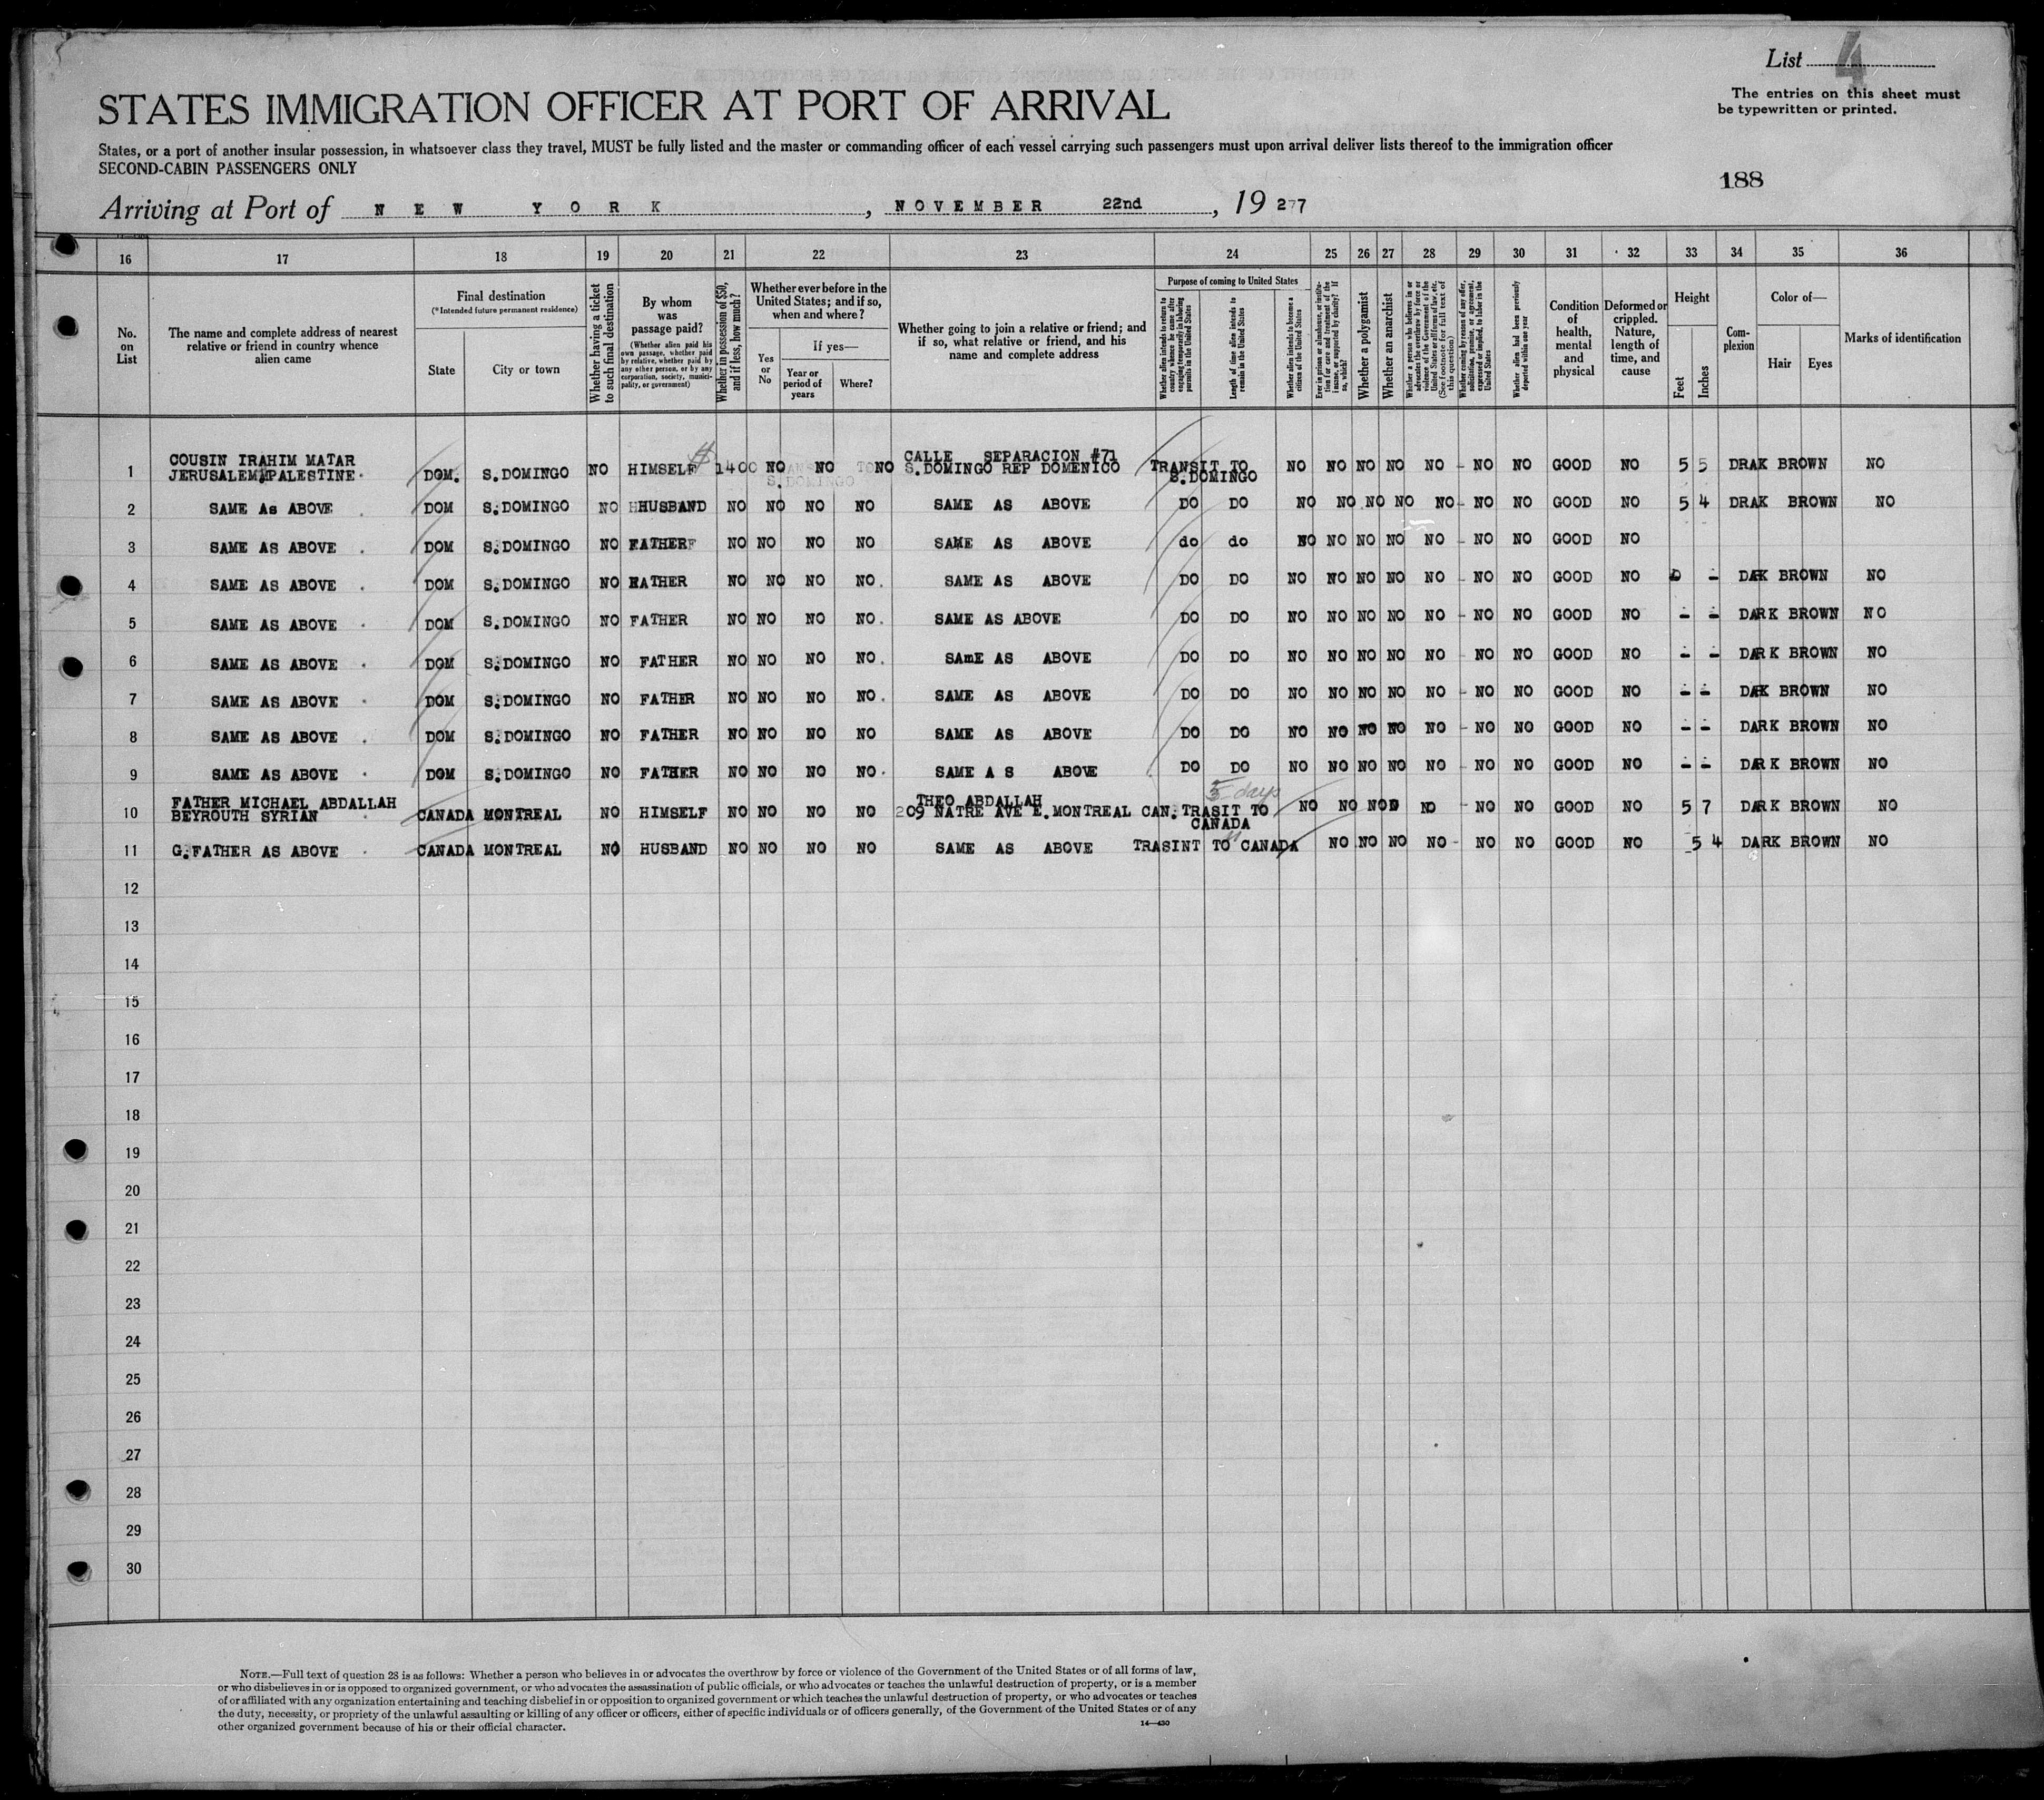 List 4
The entries on this sheet must
be typewritten or printed.
STATES IMMIGRATION OFFICER AT PORT OF ARRIVAL
States, or a port of another insular possession, in whatsoever class they travel, MUST be fully listed and the master or commanding officer of each vessel carrying such passengers must upon arrival deliver lists thereof to the immigration officer
SECOND-CABIN PASSENGERS ONLY
188
Arriving at Port of N E W Y O R K , NOVEMBER 22nd , 19 27
16 17 18 19 20 21 22 23 24 25 26 27 28 29 30 31 32 33 34 35 36
No. on List
The name and complete address of nearest relative or friend in country whence alien came
Final destination
(*Intended future permanent residence)
State
City or town
Whether having a ticket to such final destination
By whom was passage paid?
(Whether alien paid his own passage, whether paid by relative, whether paid by any other person, or by any corporation, society, municipality, or government)
Whether in possession of $50, and if less, how much?
Whether ever before in the United States; and if so, when and where?
Yes or No
If yes—
Year or period of years
Where?
Whether going to join a relative or friend; and if so, what relative or friend, and his name and complete address
Purpose of coming to United States
Whether alien intends to return to country whence he came after engaging temporarily in laboring pursuits in the United States
Length of time alien intends to remain in the United States
Whether alien intends to become a citizen of the United States
Ever in prison or almshouse, or institution for care and treatment of the insane, or supported by charity? If so, which?
Whether a polygamist
Whether an anarchist
Whether a person who believes in or advocates the overthrow by force or violence of the Government of the United States or all forms of law, etc. (See footnote for full text of this question)
Whether coming by reason of any offer, solicitation, promise, or agreement, expressed or implied, to labor in the United States
Whether alien had been previously deported within one year
Condition of health, mental and physical
Deformed or crippled. Nature, length of time, and cause
Height
Feet
Inches
Complexion
Color of—
Hair
Eyes
Marks of identification
COUSIN IRAHIM MATAR CALLE SEPARACION #71
1 JERUSALEM PALESTINE. DOM. S.DOMINGO NO HIMSELF $ 1400 NO NO NO S.DOMINGO REP DOMENICO TRANSIT TO NO NO NO NO NO - NO NO GOOD NO 5 5 DRAK BROWN NO
S.DOMINGO S.DOMINGO
2 SAME As ABOVE . DOM S.DOMINGO NO HUSBAND NO NO NO NO SAME AS ABOVE DO DO NO NO NO NO NO - NO NO GOOD NO 5 4 DRAK BROWN NO
3 SAME AS ABOVE . DOM S.DOMINGO NO FATHER NO NO NO NO SAME AS ABOVE do do NO NO NO NO NO - NO NO GOOD NO
4 SAME AS ABOVE . DOM S.DOMINGO NO FATHER NO NO NO NO. SAME AS ABOVE DO DO NO NO NO NO NO - NO NO GOOD NO - DAK BROWN NO
5 SAME AS ABOVE . DOM S.DOMINGO NO FATHER NO NO NO NO. SAME AS ABOVE DO DO NO NO NO NO NO - NO NO GOOD NO - - DARK BROWN NO
6 SAME AS ABOVE . DOM S.DOMINGO NO FATHER NO NO NO NO. SAmE AS ABOVE DO DO NO NO NO NO NO - NO NO GOOD NO - - DARK BROWN NO
7 SAME AS ABOVE . DOM S.DOMINGO NO FATHER NO NO NO NO. SAME AS ABOVE DO DO NO NO NO NO NO - NO NO GOOD NO - - DAK BROWN NO
8 SAME AS ABOVE . DOM S.DOMINGO NO FATHER NO NO NO NO SAME AS ABOVE DO DO NO NO NO NO NO - NO NO GOOD NO - - DARK BROWN NO
9 SAME AS ABOVE . DOM S.DOMINGO NO FATHER NO NO NO NO. SAME A S ABOVE DO DO NO NO NO NO NO - NO NO GOOD NO - - DARK BROWN NO
FATHER MICHAEL ABDALLAH THEO ABDALLAH 5 days
10 BEYROUTH SYRIAN . CANADA MONTREAL NO HIMSELF NO NO NO NO 209 NATRE AVE E.MONTREAL CAN. TRASIT TO NO NO NO NO - NO NO GOOD NO 5 7 DARK BROWN NO
CANADA
11 G.FATHER AS ABOVE . CANADA MONTREAL NO HUSBAND NO NO NO NO SAME AS ABOVE TRASINT TO CANADA NO NO NO NO - NO NO GOOD NO 5 4 DARK BROWN NO
12
13
14
15
16
17
18
19
20
21
22
23
24
25
26
27
28
29
30
NOTE.—Full text of question 28 is as follows: Whether a person who believes in or advocates the overthrow by force or violence of the Government of the United States or of all forms of law,
or who disbelieves in or is opposed to organized government, or who advocates the assassination of public officials, or who advocates or teaches the unlawful destruction of property, or is a member
of or affiliated with any organization entertaining and teaching disbelief in or opposition to organized government or which teaches the unlawful destruction of property, or who advocates or teaches
the duty, necessity, or propriety of the unlawful assaulting or killing of any officer or officers, either of specific individuals or of officers generally, of the Government of the United States or of any
other organized government because of his or their official character.
14—430